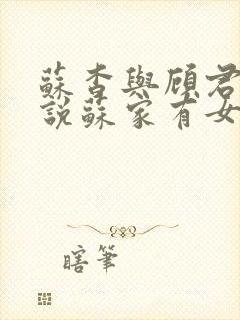 蘇杳與顧君
說蘇家有女
瞎筆